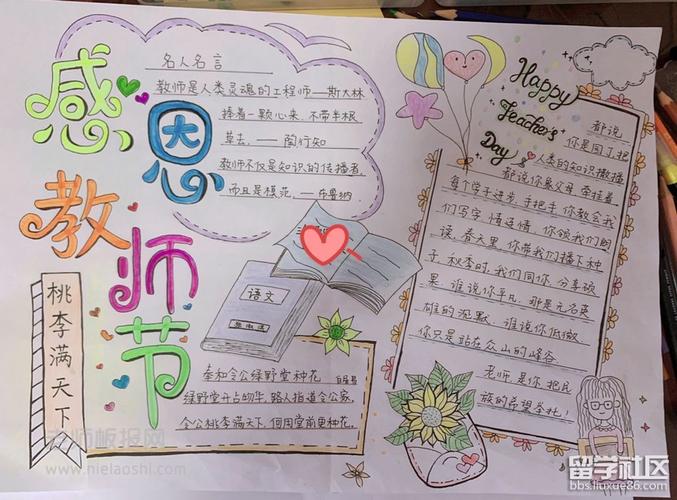 感恩
教师节
名人名言
教师是人类灵魂的工程师——斯大林
捧着一颗心来，不带半根
草去。——陶行知
教师不仅是知识的传播者，
而且是模范。——布鲁纳
Happy
Teacher's
Day
都说
你是园丁，把
人类的知识撒播
都说你象父母，牵挂着
每个学子进步，手把手，你教会我
们写字
读，春天里，你带我们播下种
子，秋季时，我们同你，分享硕
果，谁说你平凡，那是无名英
雄的沉默，谁说你低微
你只是站在众山的峰谷
老师，是你，把民
族的希望举托！
语文
桃李满天下
奉和令公绿野堂种花
白居易
绿野堂开占物华，路人指道令公家，
令公桃李满天下，何用堂前更种花。
老师板报网
www.nielaoshi.com
留学社区
bbs.liuxue86.com